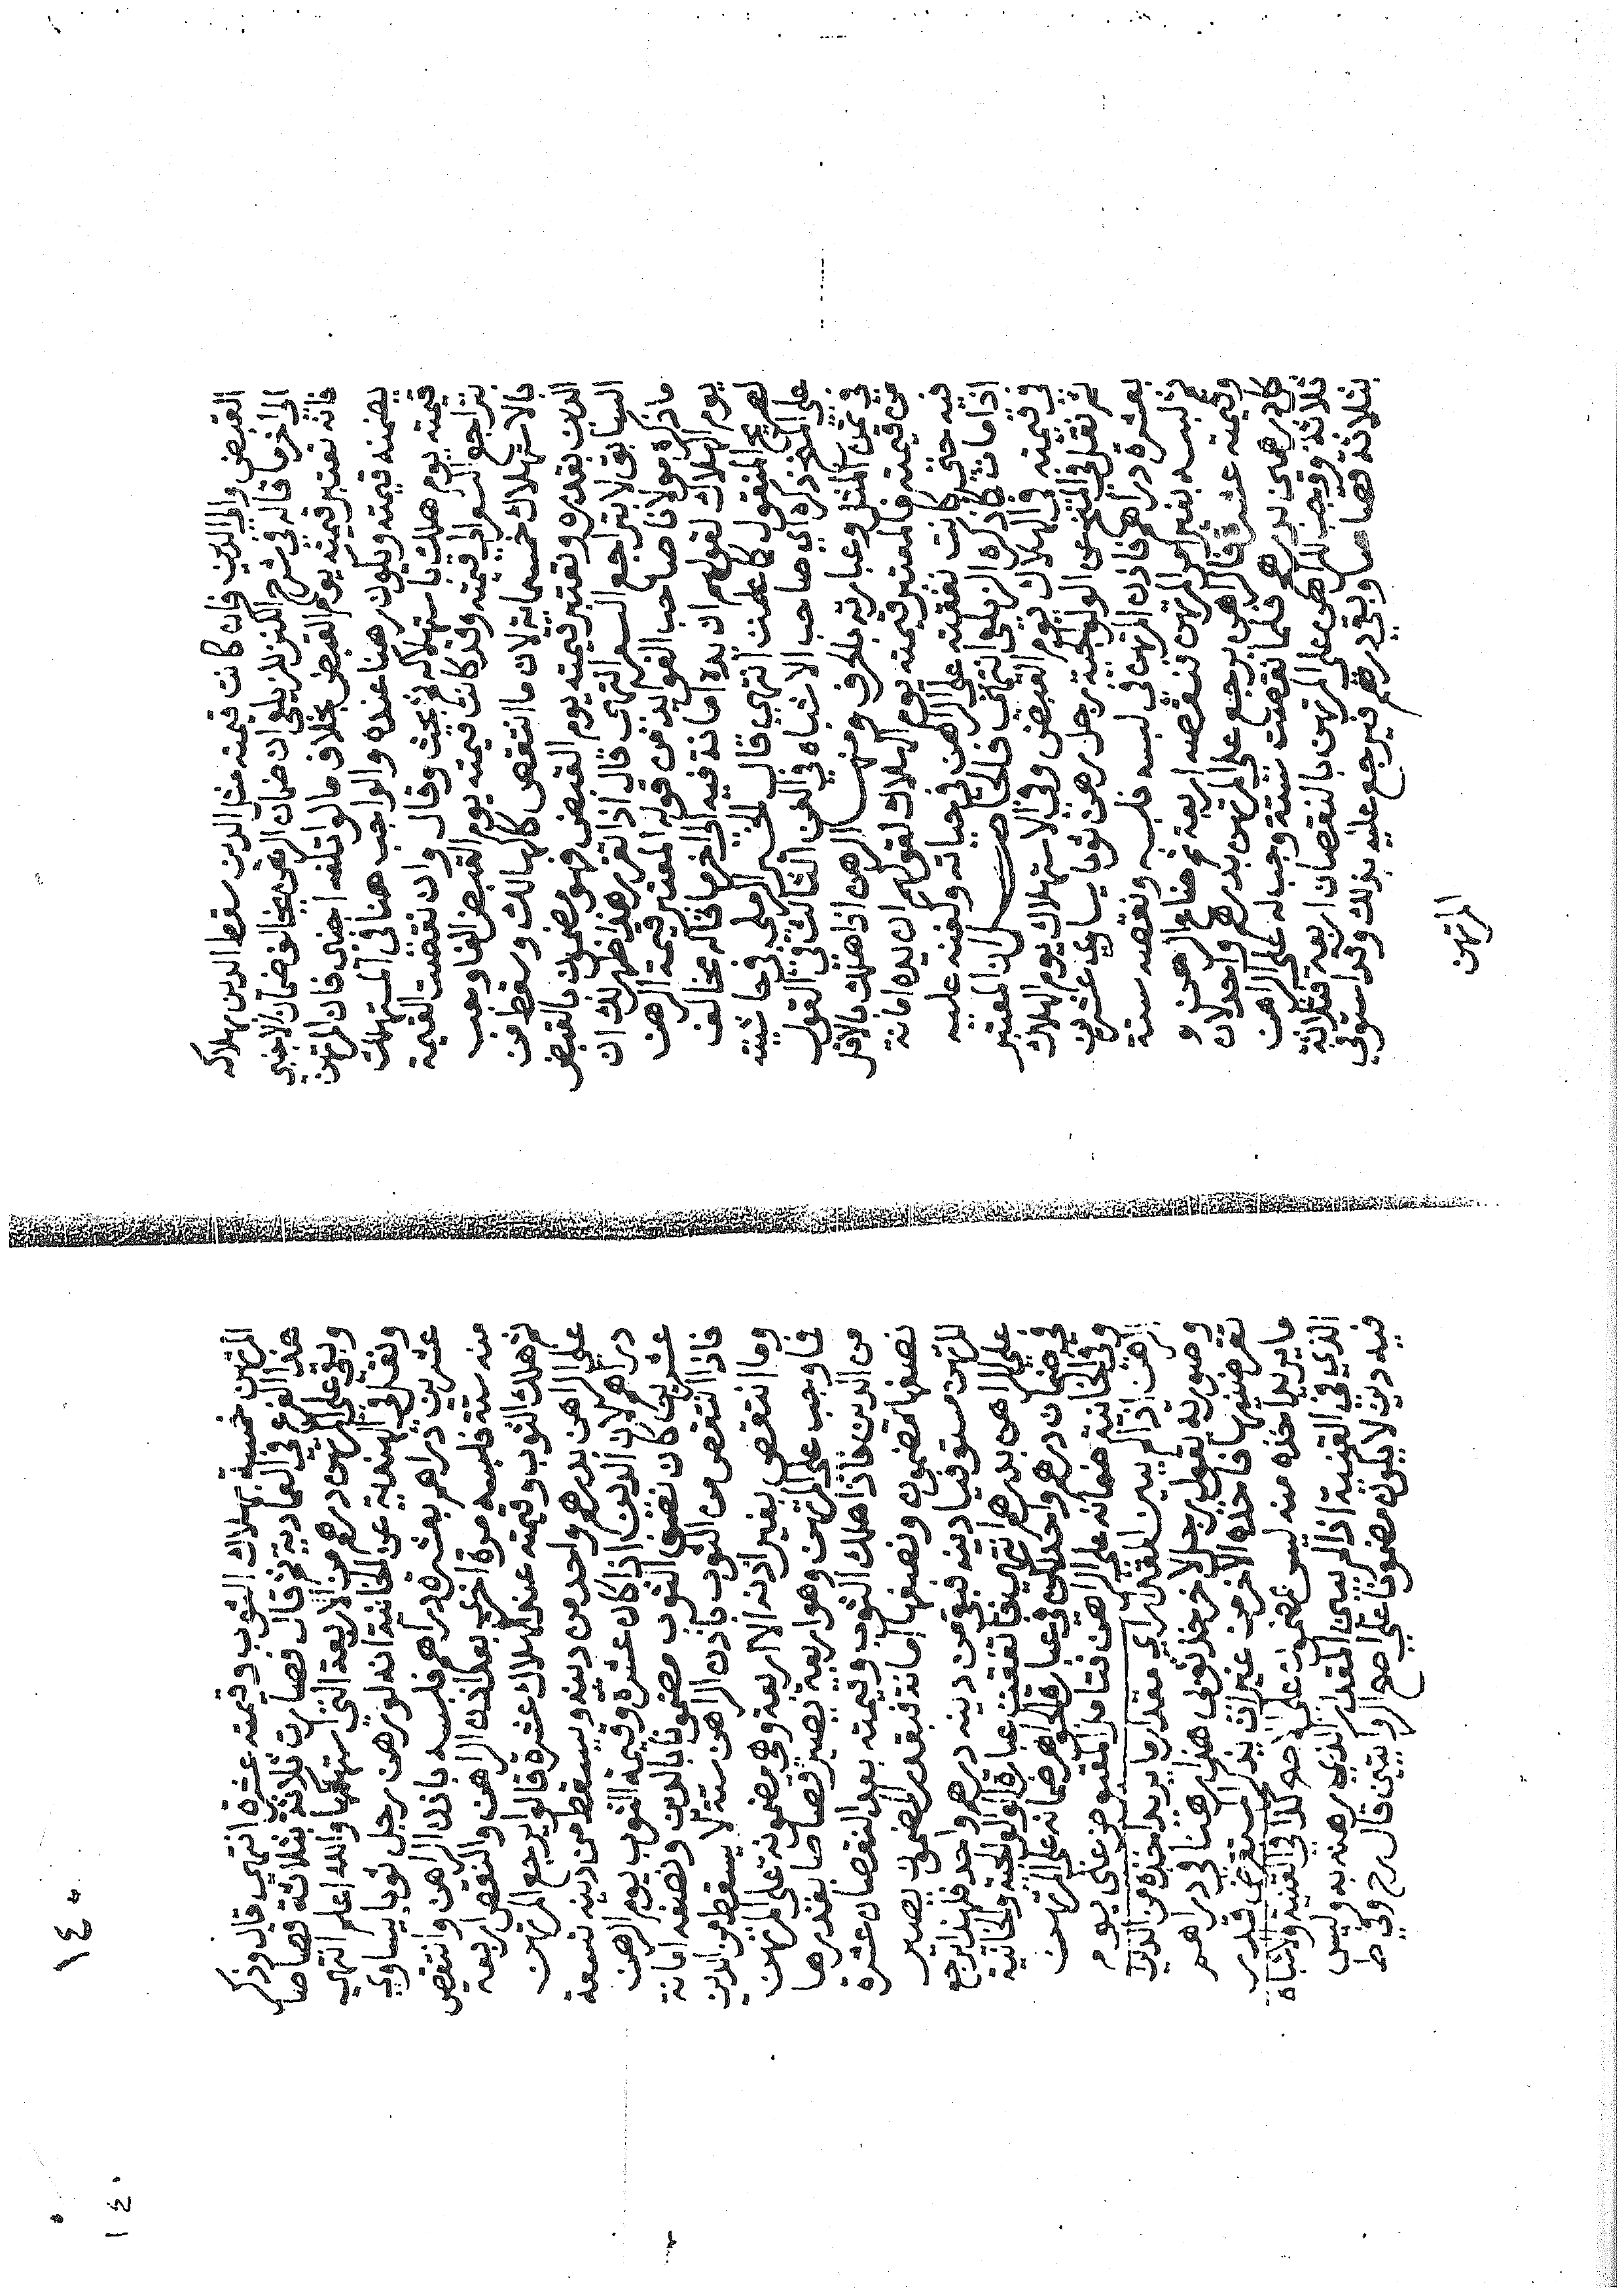 القبض والى الدين فان كانت قيمته مثل الدين سقط الدين بهلاكه
الى اخر ما قاله في شرح الكنز للزيلعي ان ضمان الرهن يخالف ضمان الاجنبي
فانه تعتبر قيمته يوم القبض بخلاف ما لو اتلفه اجنبى فان المرتهن
يضمنه قيمته ويكون رهنا عنده والواجب هنا فى المستهلك
قيمته يوم هلك باستهلاكه ثم بحث وقال وان نقصت القيمة
بتراجع السعر الى قيمته وقد كانت قيمته يوم القبض الفا وجب
بالاستهلاك خمسمائة لان ما انتقص كالهالك وسقط من
الدين بقدره وتعتبر قيمته يوم القبض فهو مضمون بالقبض
السابق لا بتراجع السعر انتهى قال اذا تقرر هذا ظهر لك ان
ما ذكره مولانا صاحب الفوايد من قوله المعتبر قيمة الرهن
يوم الهلاك لقولهم ان يده امانة فيه الى اخر ما قاله مخالف
لصريح المنقول كما علمت انتهي قال الخير الرملي في حاشيته
على المنح ذكره اي صاحب الاشباه في الفن الثالث في القول
في ثمن المثل وعبارته بالحرف ومنها الرهن اذا هلك بالاقل
من قيمته فالمعتبر قيمته يوم الهلاك لقولهم ان يده امانة
فيه حتى كانت نفقته على الراهن في حياته وكفنه عليه
اذا مات كما ذكره الزيلعي انتهى فالحاصل ان المعتبر
في قيمته في الهلاك يوم القبض وفي الاستهلاك يوم الهلاك
ثم نقل في المنح عن الولوالجية رجل رهن ثوبا يساوي عشرين
بعشرة دراهم فاذن المرتهن في لبسه فلبسه ونقصه ستة
ثم لبسه بغير امر المرتهن فنقصه اربعة ثم ضاع الرهن و
وقيمته عشرة فالراهن يرجع على المرتهن بدرهم واحد لان
كل درهمين بدرهم فلما نقصت ستة وجب له على الراهن
ثلاثة ووجب للراهن على المرتهن بالنقصان اربعة فثلاثة
بثلاثة قصاصا وبقي درهم فيرجع عليه بذلك وقد استوفى
المرتهن
المرتهن خمسة بهلاك الثوب وقيمته عشرة انتهي قال وذكر
هذا الفرع في العمادية ثم قال فصارت ثلاثة بثلاثة قصاصا
وبقي على المرتهن درهم من الاربعة التي استهلكها والله اعلم انتهى
ونقل في الهندية عن الخانية انه لو رهن رجل ثوبا يساوي
عشرين دراهم بعشرة دراهم فلبسه باذن الراهن وانتقص
منه ستة فلبسه مرة اخرى بعد اذن الراهن والنقص اربعة
ثم هلك الثوب وقيمته عند الهلاك عشرة قالوا يرجع المرتهن
على الراهن بدرهم واحد من دينه ويسقط من دينه تسعة
دراهم لان الدين اذا كان عشرة وقيمة الثوب يوم الرهن
عشرين كان نصف الثوب مضمونا بالدين ونصفه امانة
فاذا انتقص من الثوب باذن الراهن ستة لا يسقط من الدين
وما انتقص بغير اذنه الاربعة وهي مضمونة على المرتهن
فاوجب على المرتهن وهو اربعة يصير قصاصا بقدرها
من الدين فاذا هلك الثوب وقيمته بعد النقصان عشرة
نصفها مضمون ونصفها امانة فبقدر المضمون يصير
المرتهن مستوفيا دينه فبقي من دينه درهم واحد فلهذا يرجع
على الراهن بدرهم انتهي فاتفقت عبارة الولوالجية والخانية
في ضمان درهم واحد لكن في عبارة الجواهر ضمانه على المرتهن
وفي الخانية ضمانه على الراهن فتامل المقبوض على سوم
الرهن اذا لم يبين المقدار اي مقدار ما يريد اخذه من الدين
وصورته يقول رجل لاخر خذ ثوبى هذا رهنا في دراهم
تقرضنيها فاخذه الاخر من غير ان يذكر المستقرض قدر
ما يريد اخذه منه ليس بمضمون على الاصح كذا في القنية والاشباه
الذي في القنية اذا لم يبين المقدار الذي رهنه به وليس
فيه دين لا يكون مضمونا على اصح الروايتين قال رح وفي ط
١٤٠
١٤٠